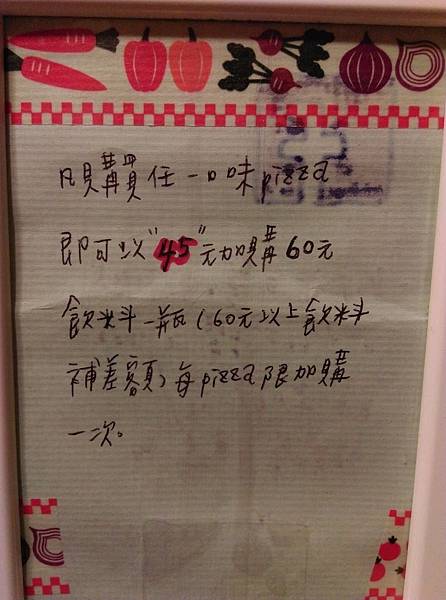 凡購買任一口味pizza
即可以"45"元加購60元
飲料一瓶(60元以上飲料
補差額)每pizza限加購
一次。